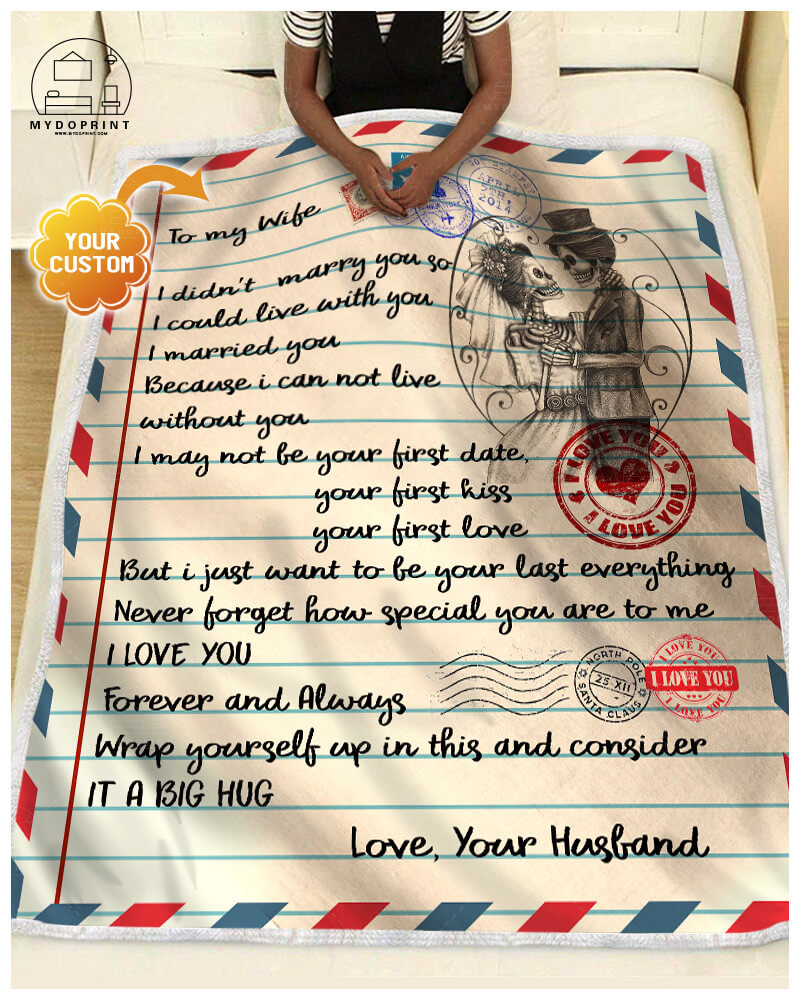 MYDOPRINT
WWW.MYDOPRINT.COM
YOUR
CUSTOM
APRIL
5TH,
2014
To my Wife
I didn't marry you so
I could live with you
I married you
Because i can not live
without you
I may not be your first date,
your first kiss
your first love
I LOVE YOU
I LOVE YOU
But i just want to be your last everything
Never forget how special you are to me
I LOVE YOU
NORTH POLE
25-XII
SANTA CLAUS
I LOVE YOU
I LOVE YOU
I LOVE YOU
Forever and Always
Wrap yourself up in this and consider
IT A BIG HUG
Love, Your Husband